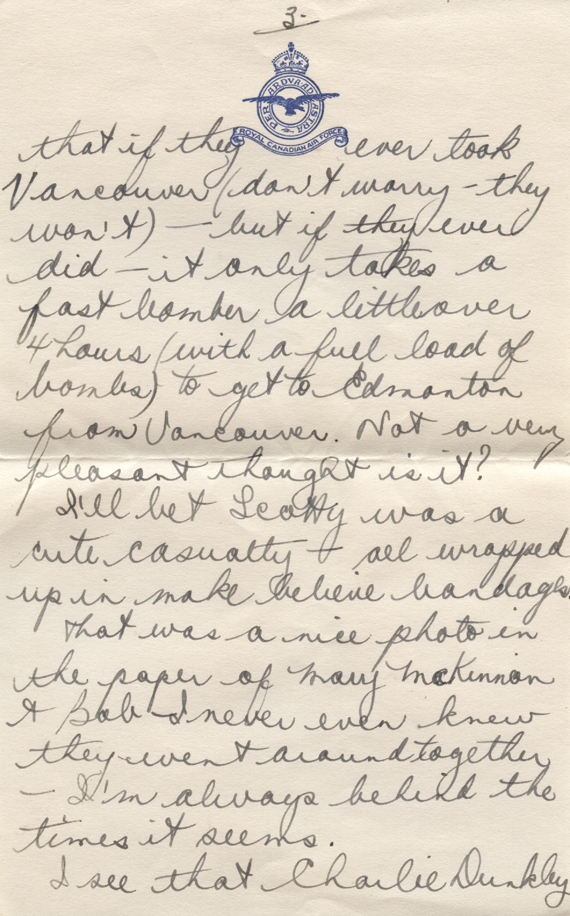 3-
PER ARDUA AD ASTRA
ROYAL CANADIAN AIR FORCE
that if they ever took
Vancouver (don't worry - they
won't) - but if they ever
did - it only takes a
fast bomber a little over
4 hours (with a full load of
bombs) to get to Edmonton
from Vancouver. Not a very
pleasant thought is it?
I'll bet Scotty was a
cute casualty + all wrapped
up in make believe bandages.
That was a nice photo in
the paper of Mary McKinnon
& Bob - I never even knew
they went around together
- I'm always behind the
times it seems.
I see that Charlie Dunkley